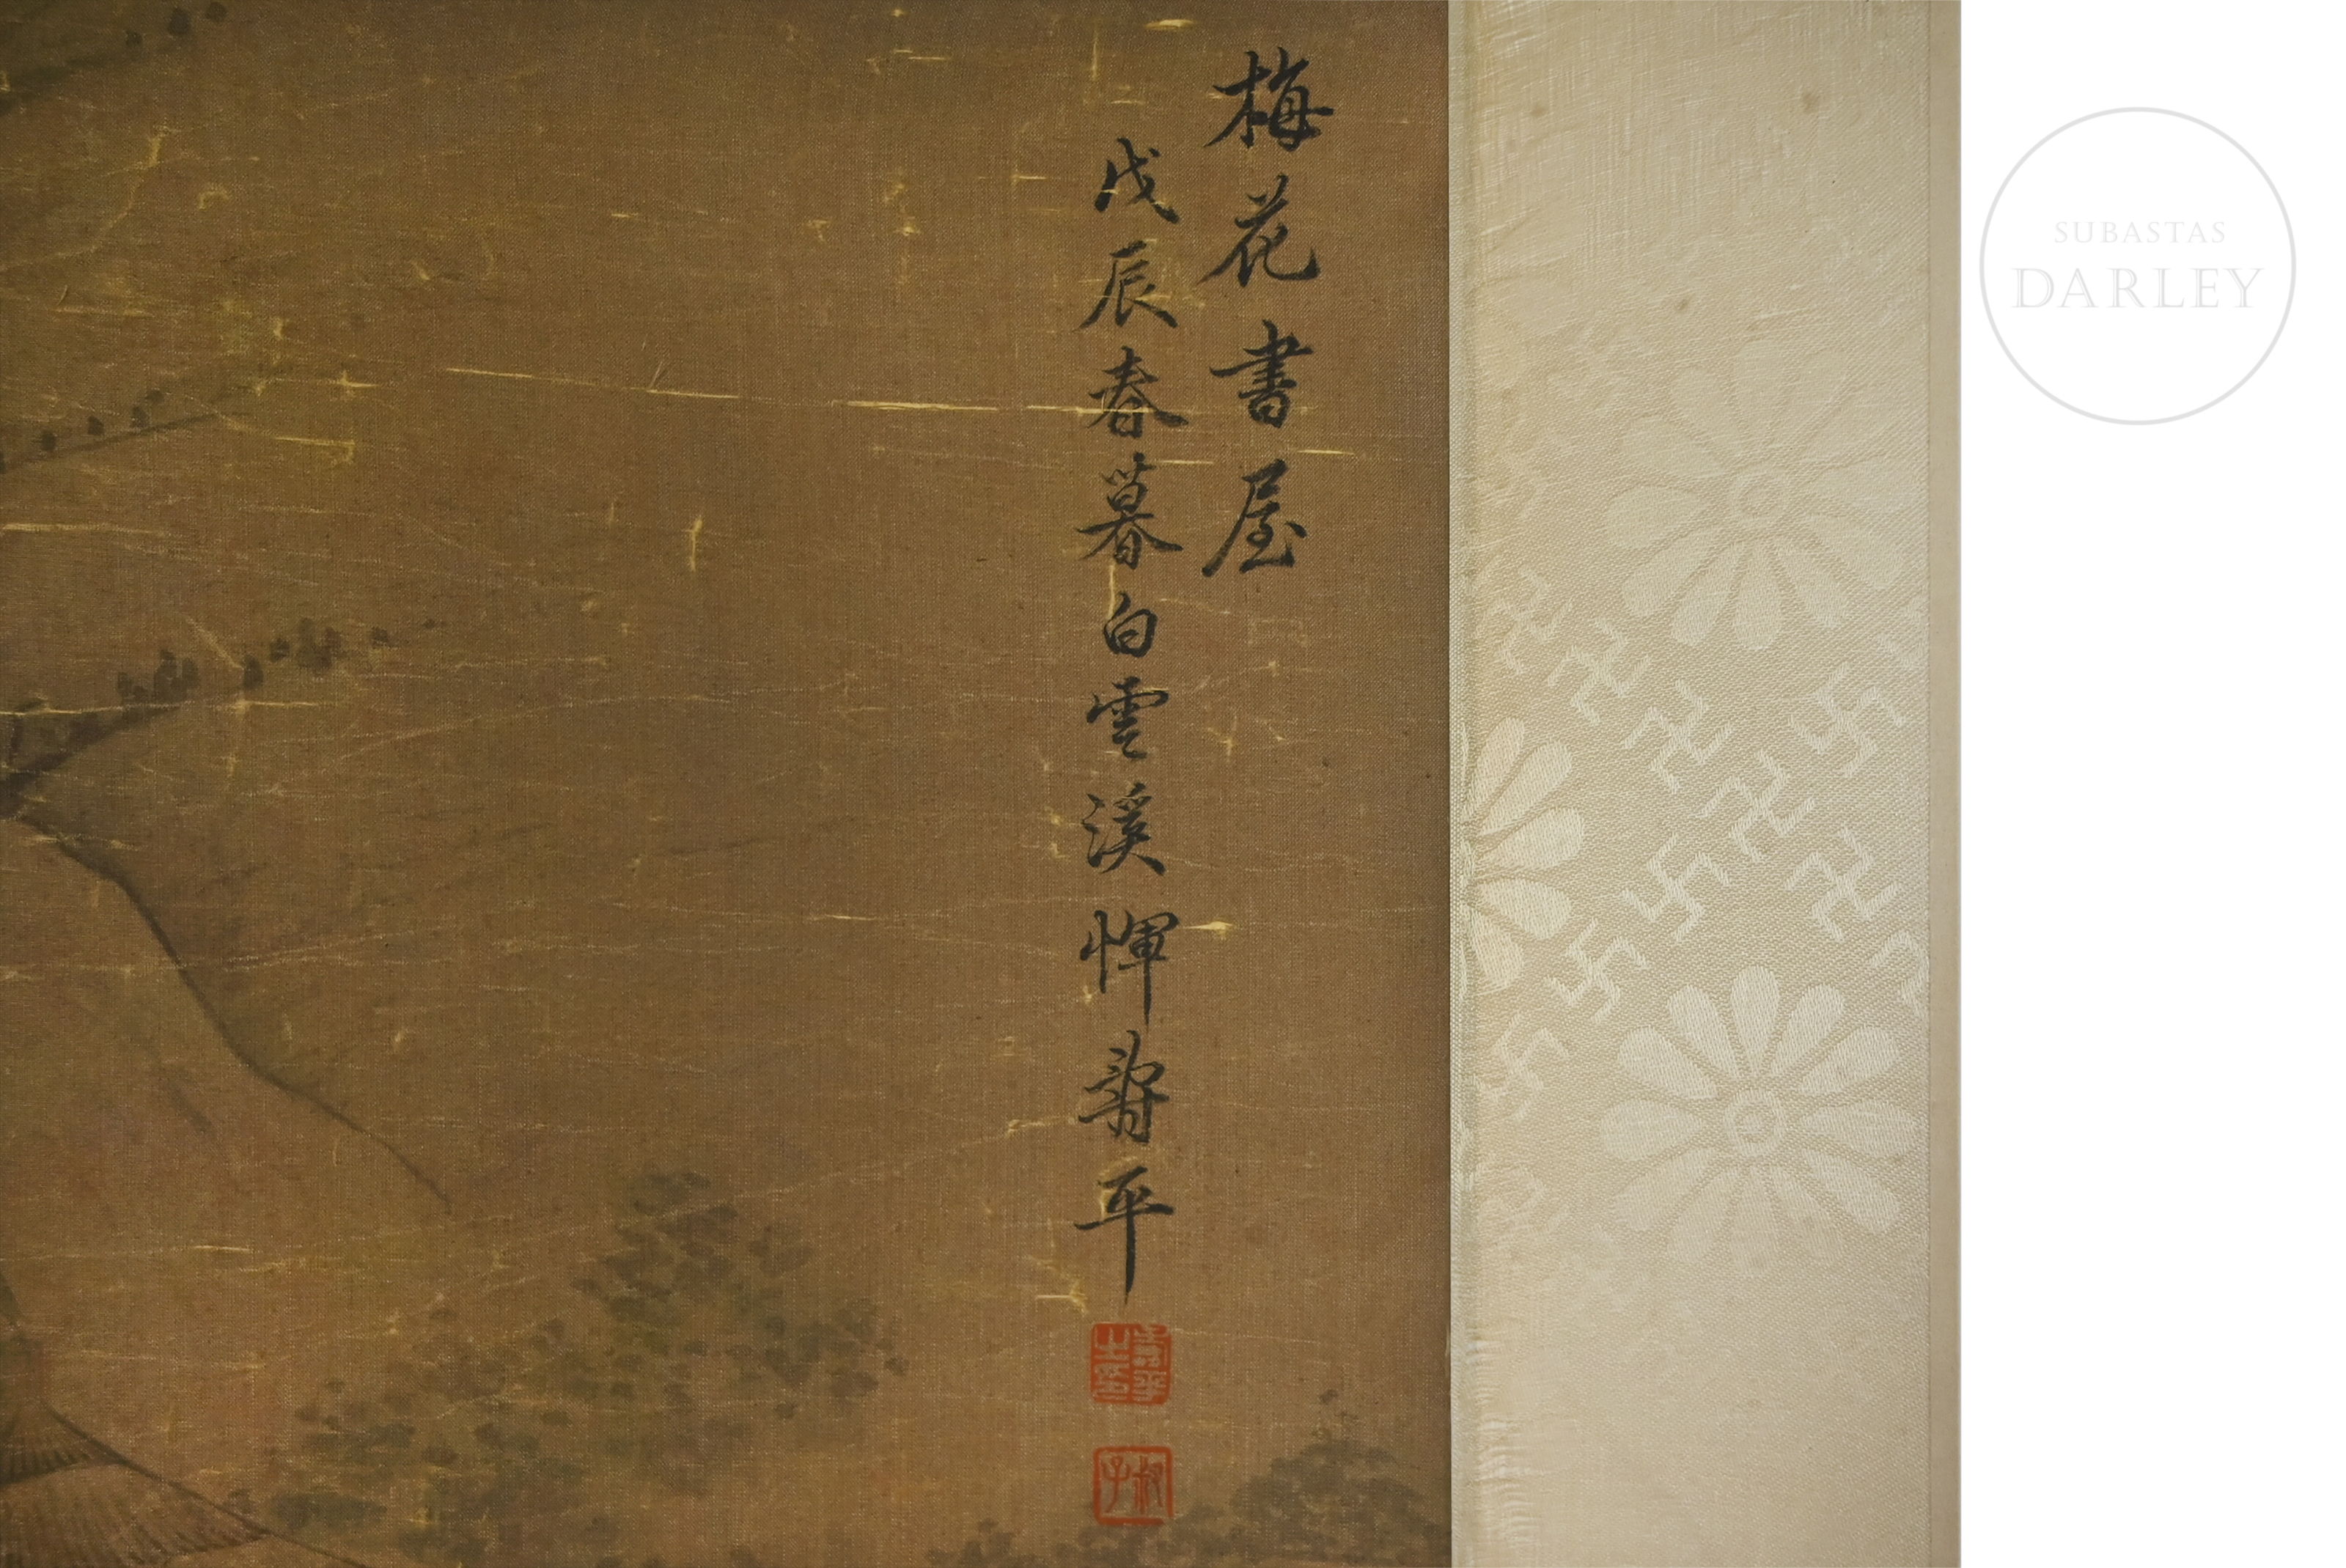 梅花書屋
戊辰春暮白雲溪惲壽平
壽平之印
叔子
SUBASTAS
DARLEY